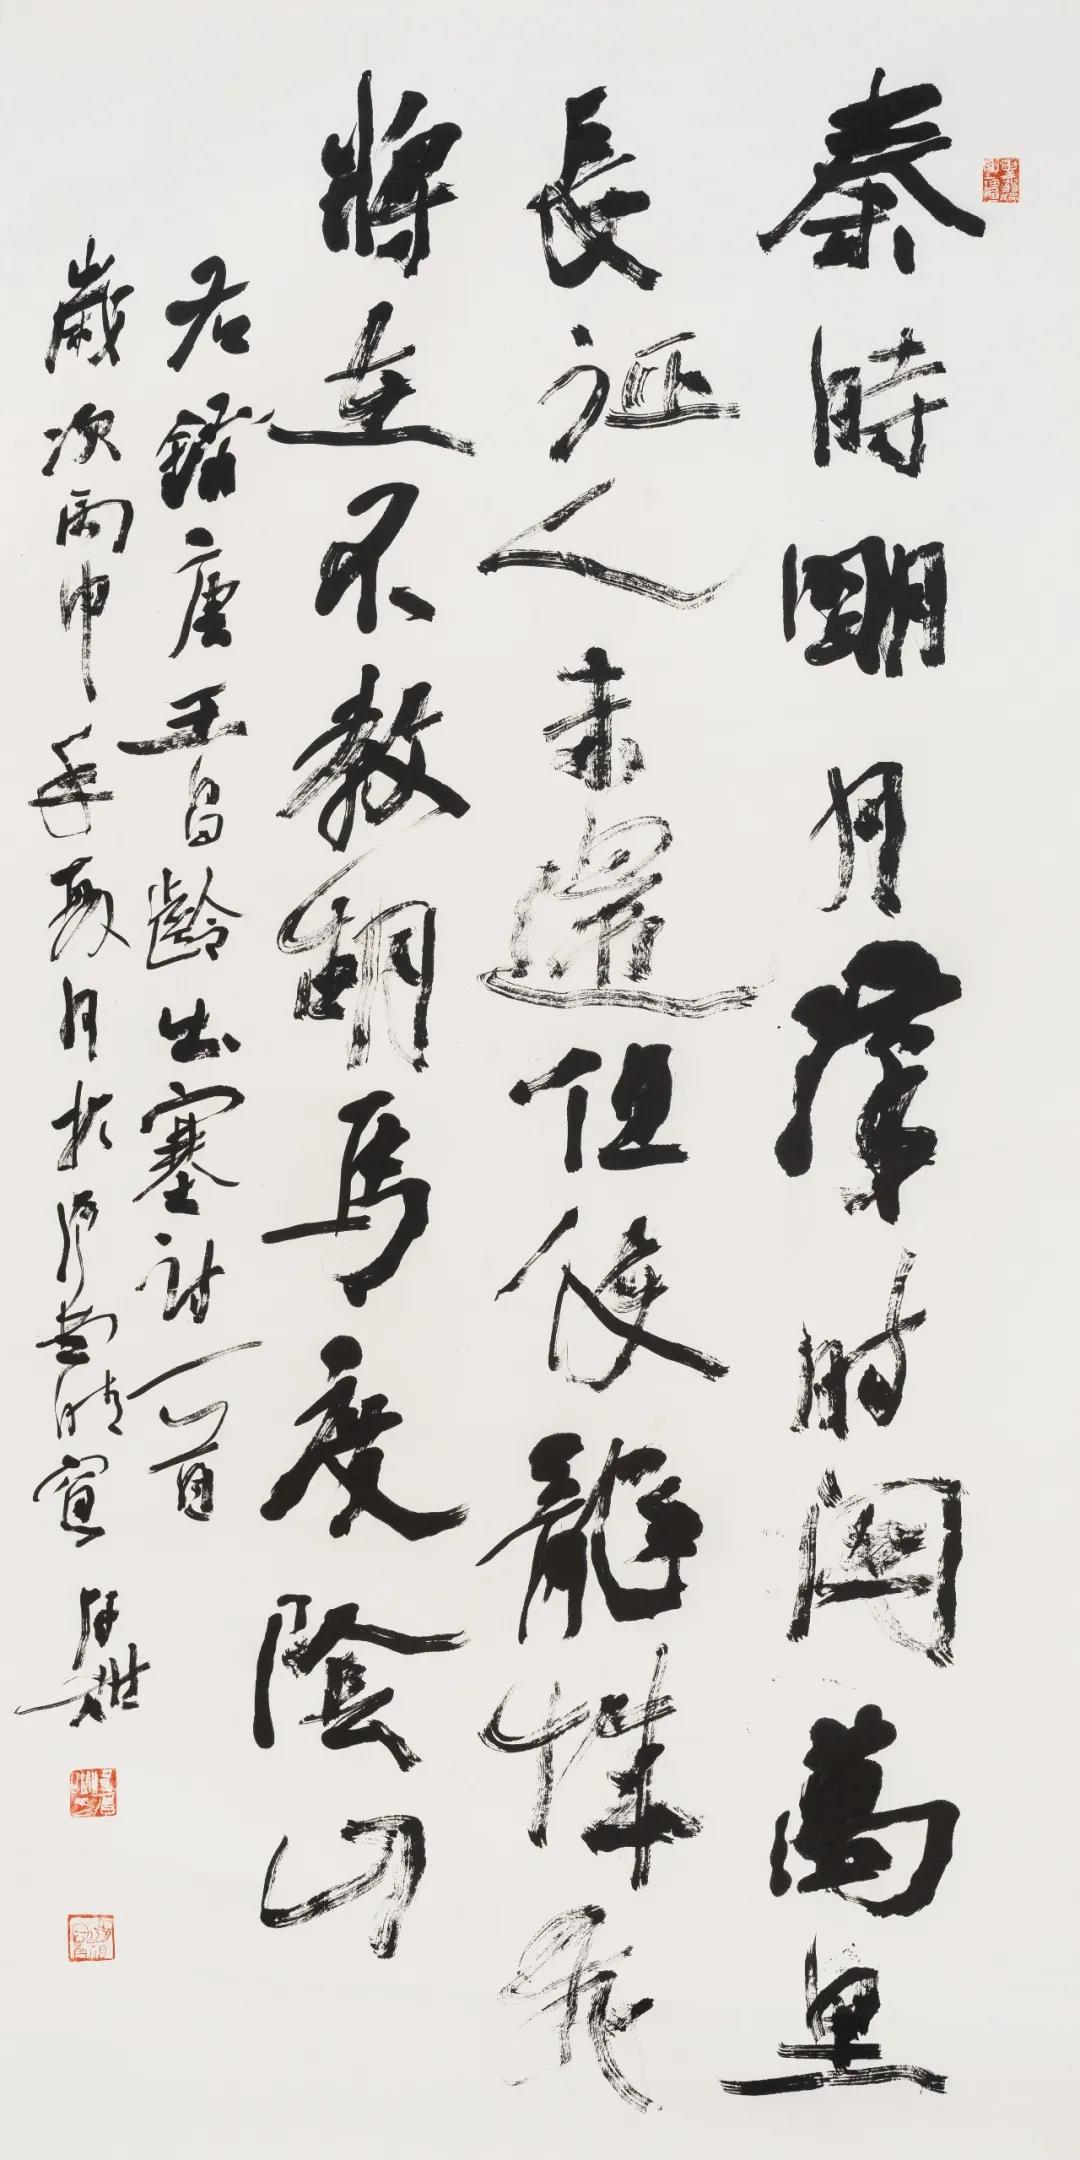 秦時明月漢時關萬里
長征人未還但使龍城飛
將在不教胡馬度陰山
右錄唐王昌齡出塞詩一首
歲次丙申年月於晴窗